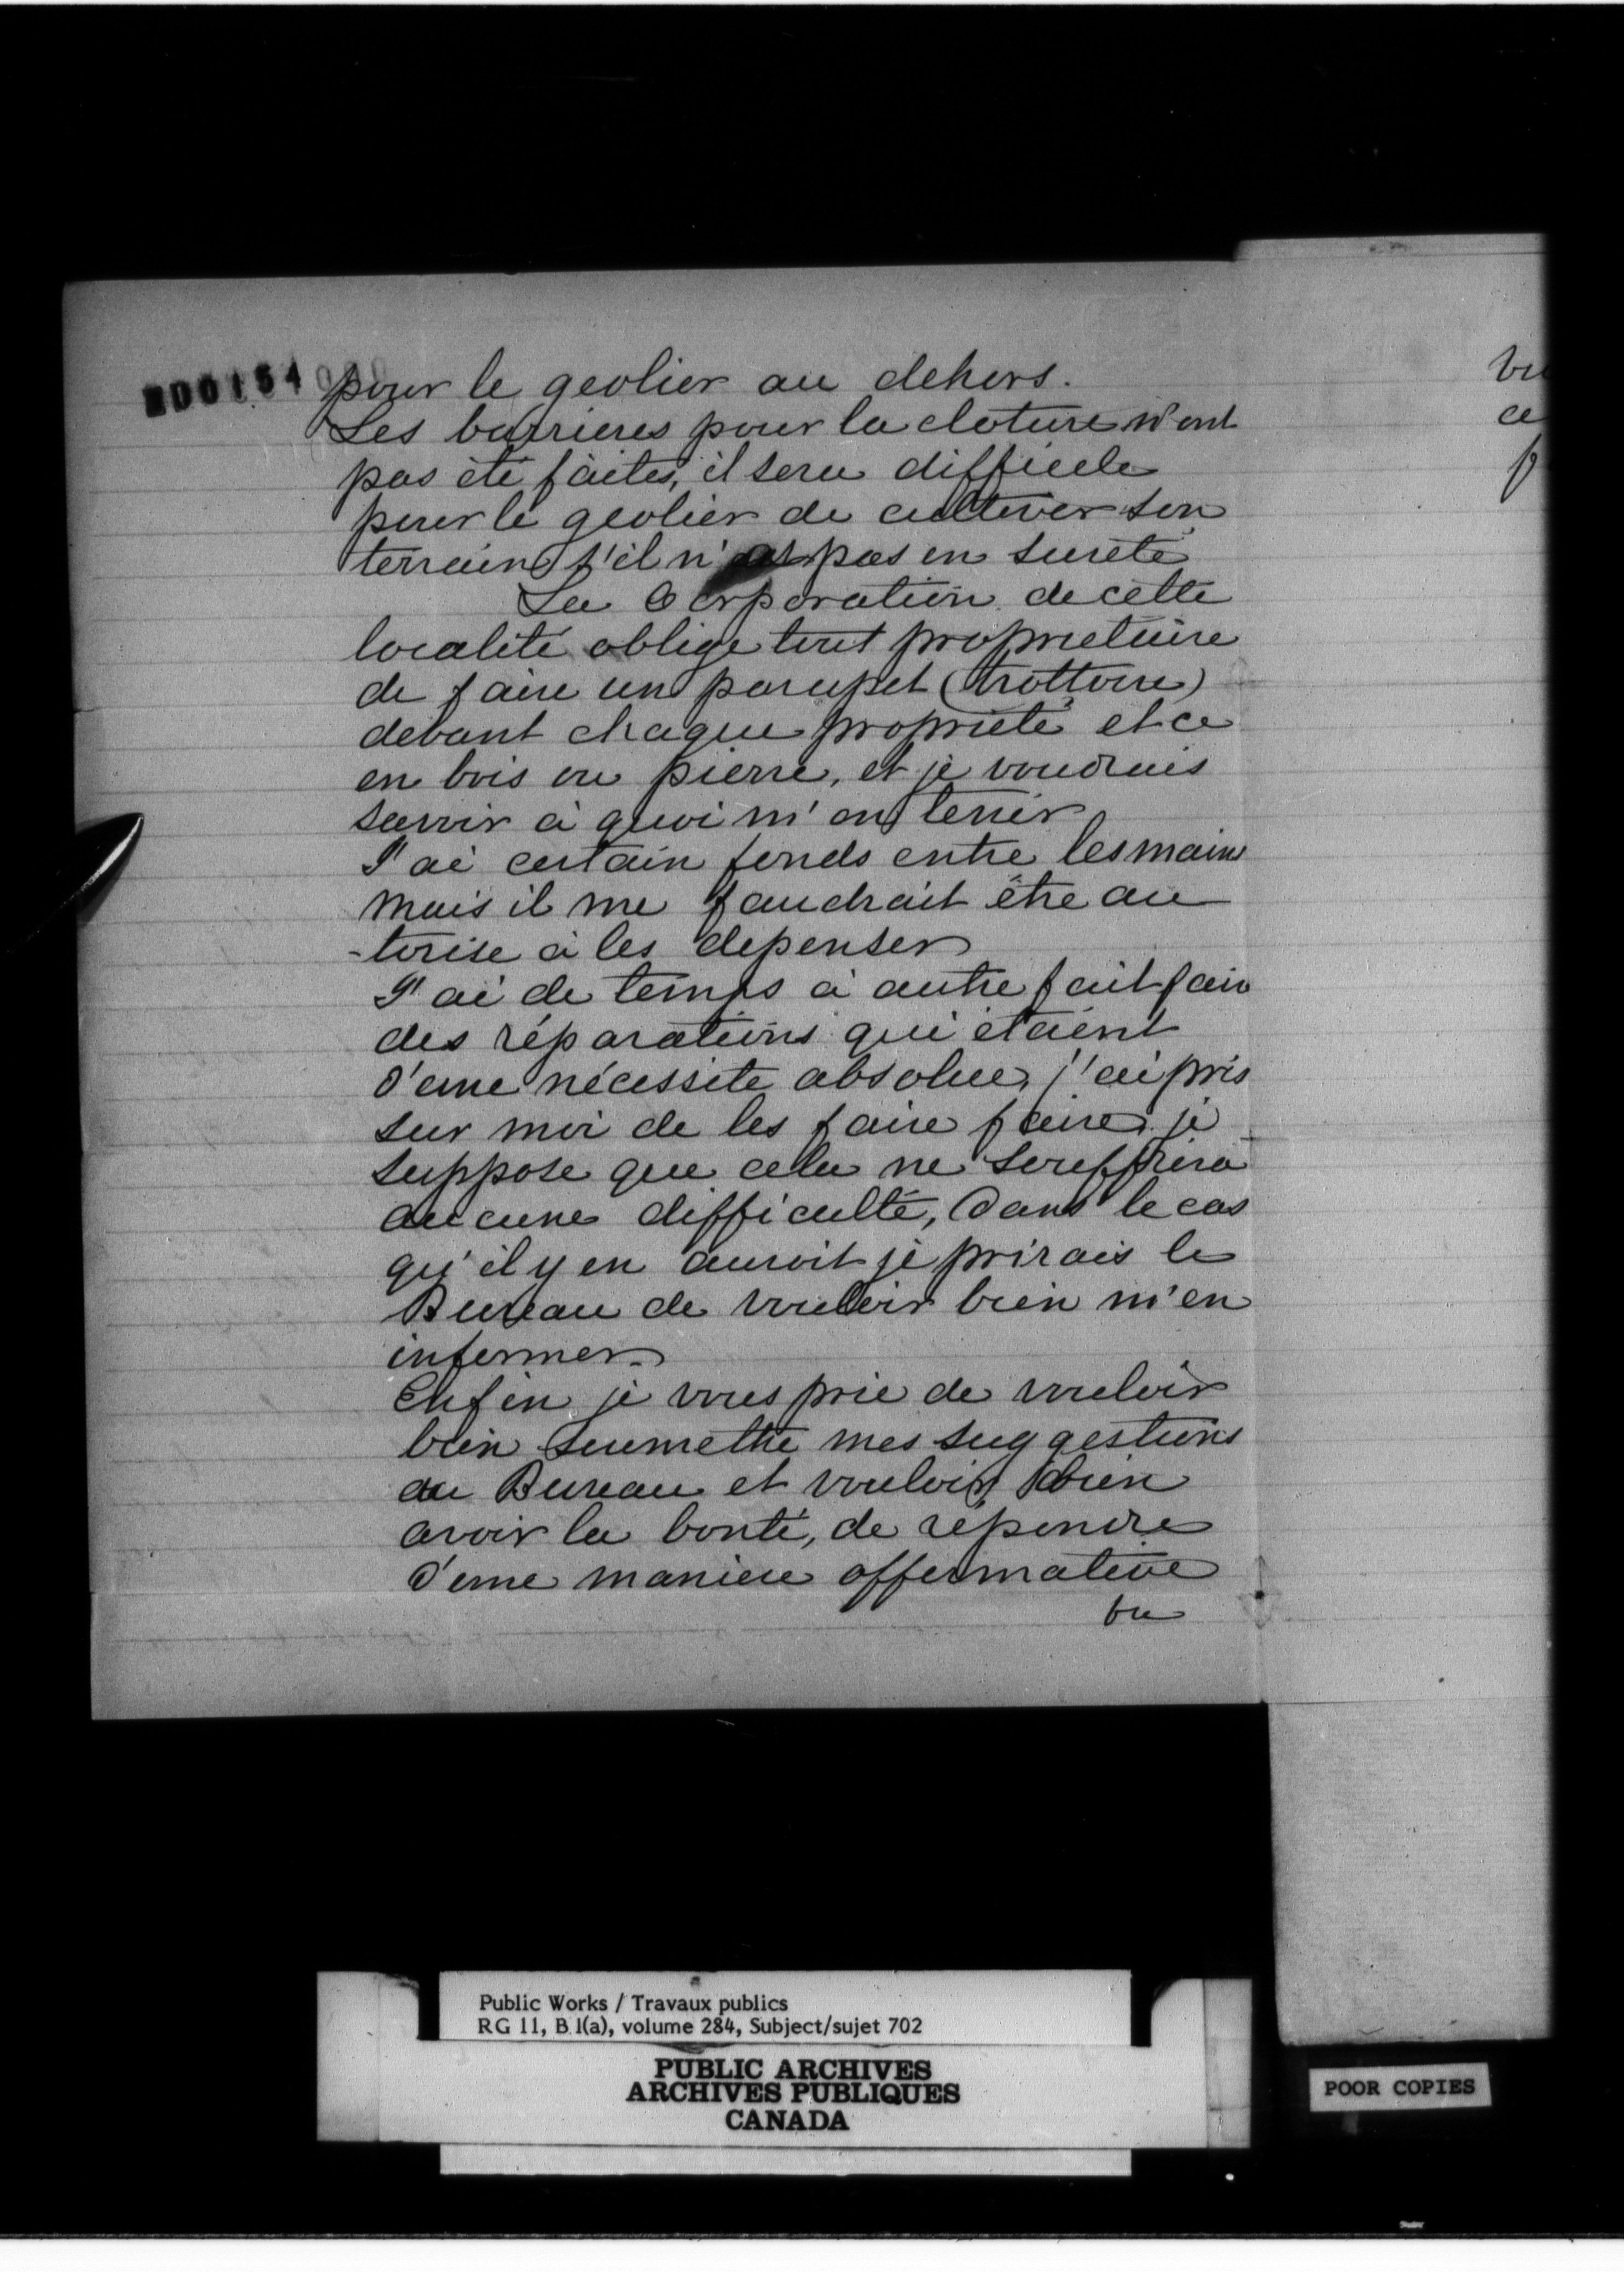 pour le geolier au dehors.
Les barrieres pour la cloture n'ont
pas été faites, il sera difficile
pour le geolier de cultiver son
terrain s'il n'est pas en sureté
La Corporation de cette
localité oblige tout proprietaire
de faire un parapet (trottoire)
devant chaque propriété et ce
en bois ou pierre, et je voudrais
savoir à quoi m'en tenir
J'ai certain fonds entre les mains
mais il me faudrait être au
-torise à les depenser
J'ai de temps à autre fait faire
des réparations qui étaient
d'une nécessite absolue, j'ai pris
sur moi de les faire faire je
suppose que cela ne souffrira
aucune difficulté, dans le cas
qu'il y en auroit je prirais le
Bureau de vouloir bien m'en
informer.
Enfin je vous prie de vouloir
bien soumettre mes suggestions
au Bureau et vouloir bien
avoir la bonté, de répondre
d'une maniere affirmative
ou
Public Works / Travaux publics
RG 11, B 1(a), volume 284, Subject/sujet 702
PUBLIC ARCHIVES
ARCHIVES PUBLIQUES
CANADA
POOR COPIES